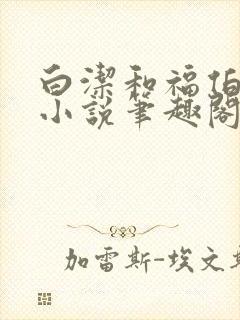 白潔和福伯
小説筆趣閣
加雷斯-埃文斯